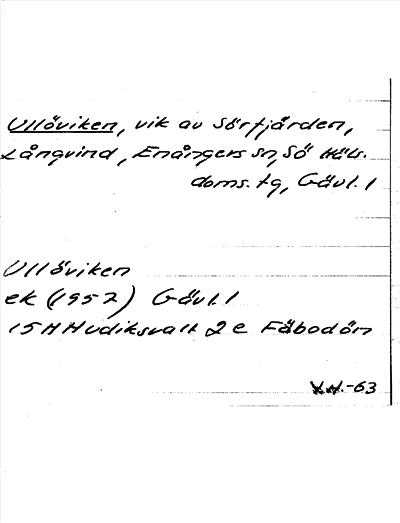 Ullöviken, vik av Sörfjärden,
Långvind, Enångers sn, Sö Häls.
doms. tg, Gävl. l
Ullöviken
ek (1952) Gävl. l
15H Hudiksvall 2 e Fäbodön
-63